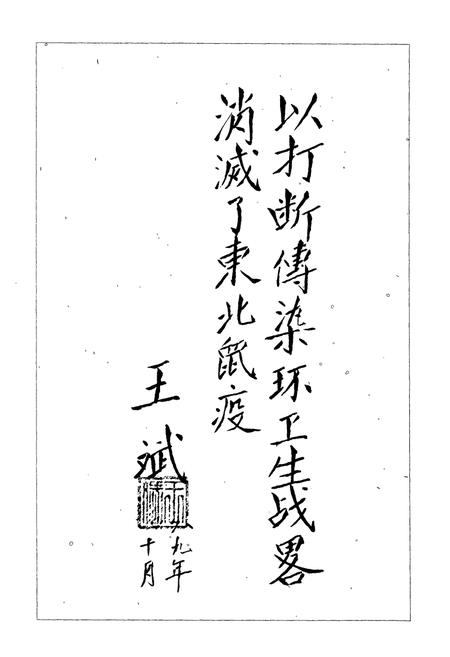 以打断傳染环卫生战畧
消滅了東北鼠疫
王斌
八九年
十月